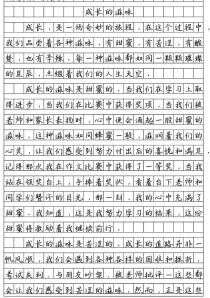 成长的滋味
成长,是一场奇妙的旅程,在这个过程中,
我们品尝着各种滋味,有甜蜜,有苦涩,有酸
楚,也有辛辣,每一种滋味都如同一颗颗璀璨
的星辰,点缀着我们的人生天空。
成长的滋味是甜蜜的,当我们在学习上取
得进步,当我们在比赛中获得奖项,当我们被
老师和家长表扬时,心中便会涌起一股甜蜜的
滋味,这种滋味如同蜂蜜一般,滋润着我们的
心灵,让我们感受到努力付出后的喜悦和满足,
记得那次我在作文比赛中获得了一等奖,当我
站在领奖台上,手捧着奖状,看着台下老师和
同学们赞许的目光,那一刻,我的心中充满了
甜蜜,我知道,这是我努力学习的结果,这份
甜蜜将激励着我继续前行。
成长的滋味是苦涩的,成长的道路并非一
帆风顺,我们会遇到各种各样的困难和挫折,
考试失利,与朋友吵架,被老师批评一这些都
会让我们感受到苦涩的滋味,然而,正是这些